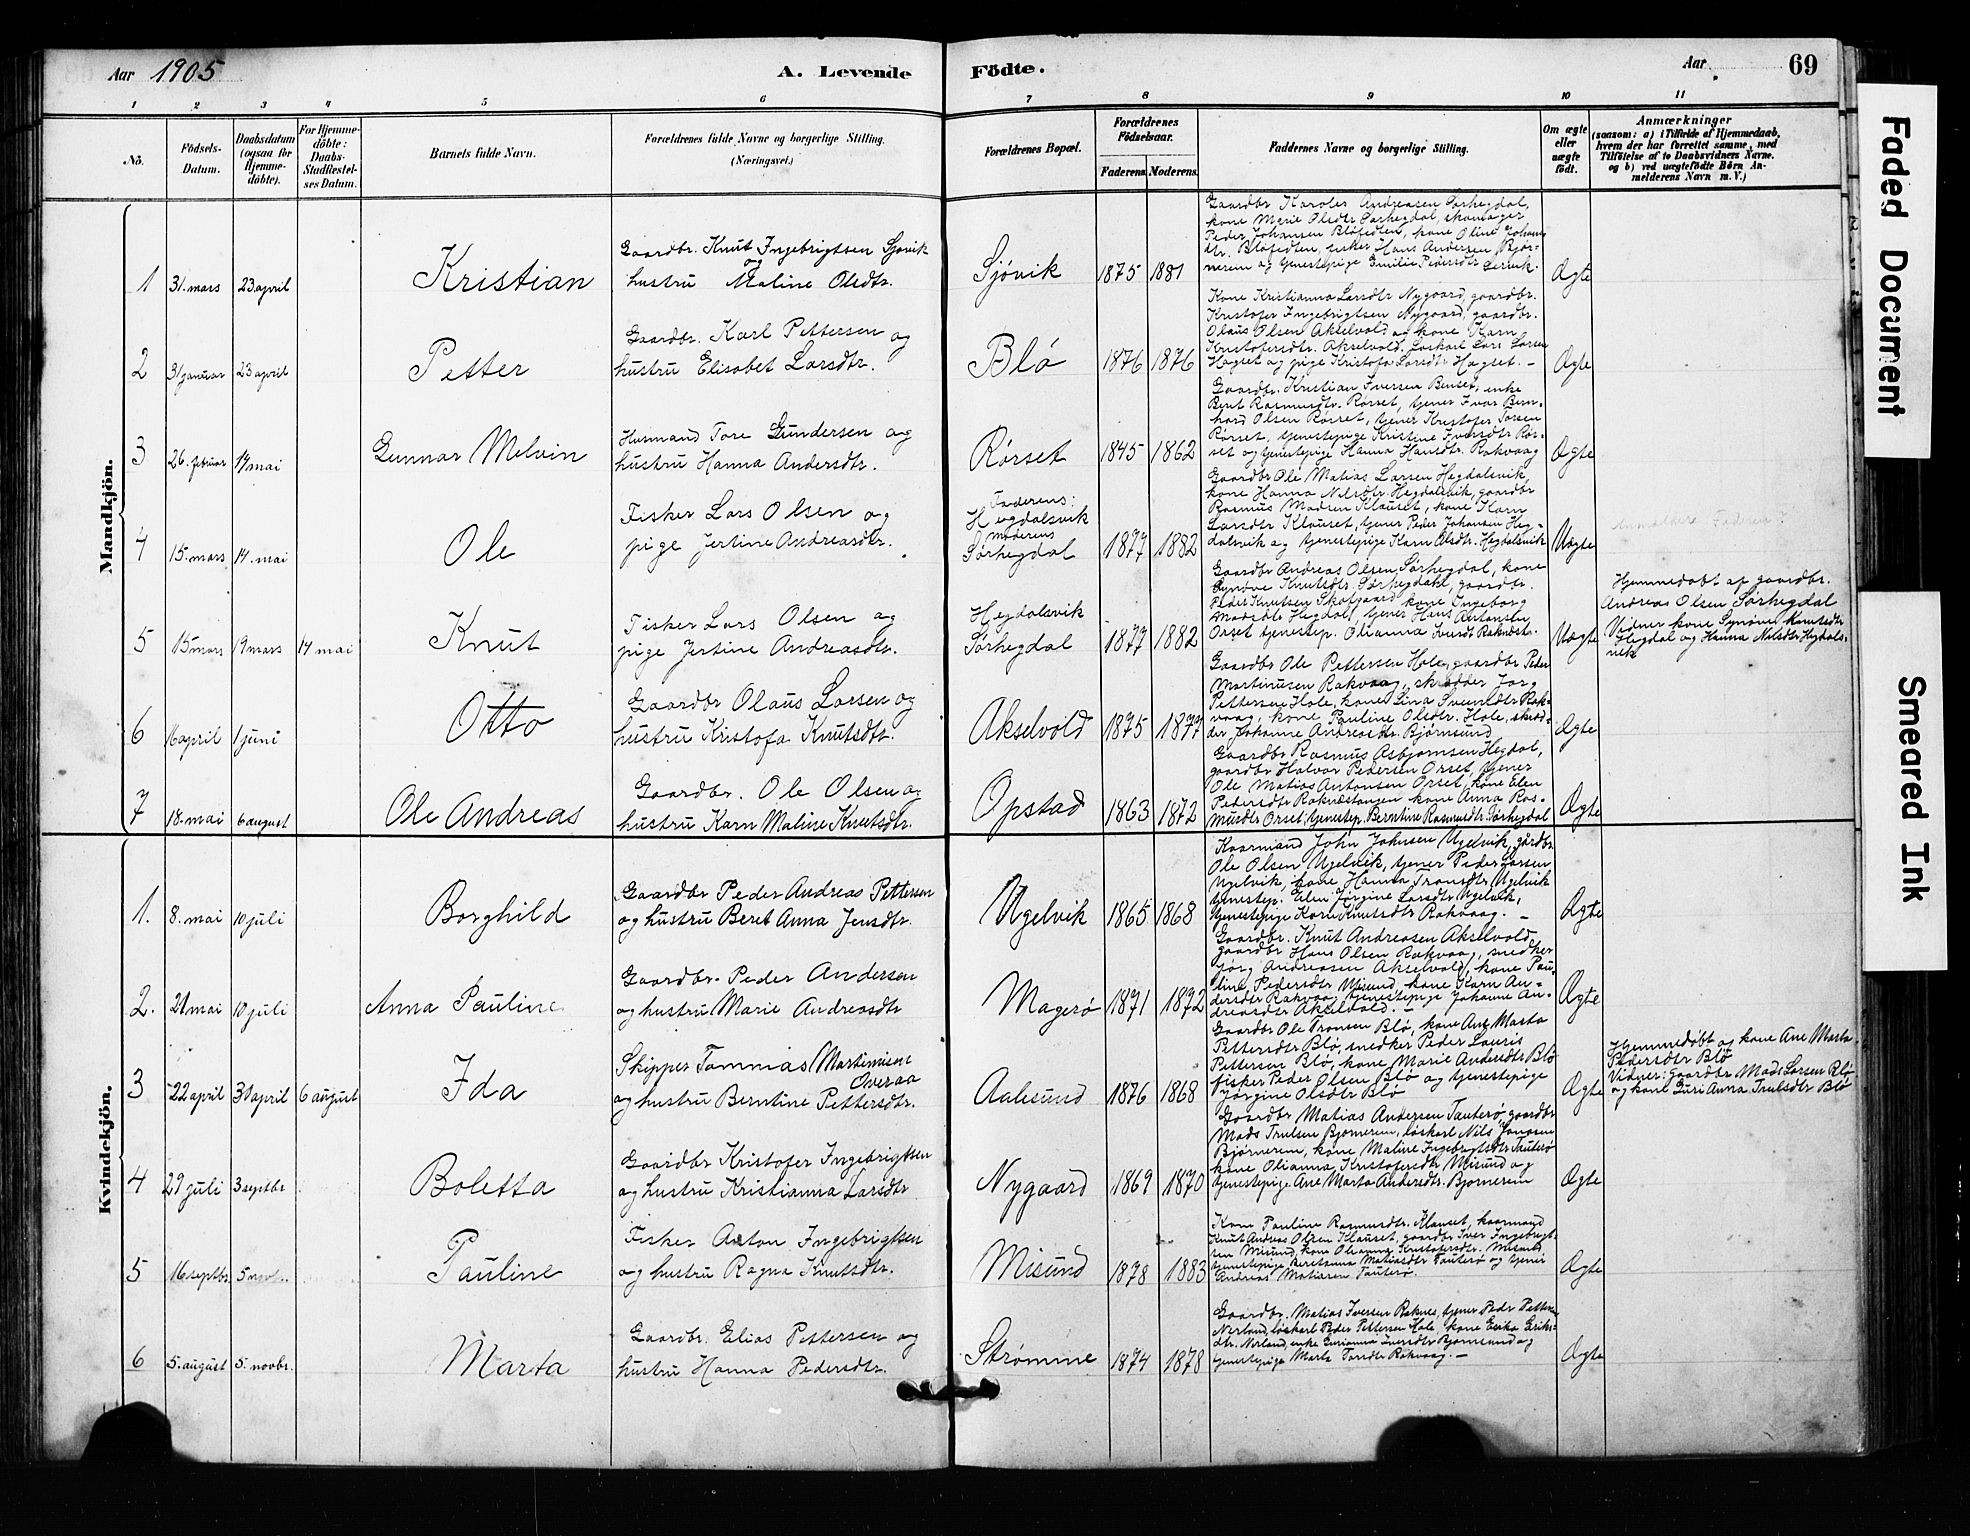 Aar 1905
A. Levende Födte.
Aar
69
1 2 3 4 5 6 7 8 9 10 11
No.
Födsels-Datum.
Daabsdatum (ogsaa for Hjemme-döbte).
For Hjemme-döbte: Daabs-Stadfestel-ses Datum.
Barnets fulde Navn.
Forældrenes fulde Navne og borgerlige Stilling. (Næringsvei.)
Forældrenes Bopæl.
Forældrenes Födselsaar.
Faderens Moderens
Faddernes Navne og borgerlige Stilling.
Om ægte eller uægte födt.
Anmærkninger
(saasom: a) i Tilfælde af Hjemmedaab,
hvem der har forrettet samme, med
Tilföielse af to Daabsvidners Navne.
og b) ved uægtefödte Börn An-
melderens Navn m. V.)
Mandkjön.
1 31. mars 23 april Kristian
Gaardbr. Knut Ingebrigtsen Sjøvik
og
hustru Maline Olsdtr.
Sjövik 1875 1881
Gaardbr Karoles Andreasen Sørhegdal,
kone Marie Olsdtr Sørhegdal, skomager
Peder Johansen Bløfedten, kone Oline Johans
dtr. Bløfedten, fisker Hans Andersen Bjør-
nerem og tjenestepige Emilie Pedersdtr
Ægte
2 31 januar 23 april Petter
Gaardbr. Karl Pettersen og
hustru Elisabet Larsdtr.
Blö 1876 1876
Kone Kristianna Larsdtr Nygaard, gaardbr.
Kristofer Ingebrigtsen Nygaard, gaardbr.
Olaus Olsen Akselvold og kone Karn
Kristofersdtr. Akselvold. Løskarl Lars Larsen
Hagset og pige Kristofa Larsdtr Hagset. -
Ægte
3 26. februar 14 mai Gunnar Melvin
Husmand Tore Gundersen og
hustru Hanna Andersdtr.
Rørset 1845 1862
Gaardbr. Kristian Iversen Benset, enke
Berit Rasmusdtr. Rørset, tjener Ivar Bern-
hard Olsen Rørset, tjener Kristofer Toresen
Rørset, tjenestepige Kristine Iversdtr Rør-
set og tjenestepige Hanna Hansdtr. Rakvaag
Ægte
4 15. mars 14. mai Ole
Fisker Lars Olsen og
pige Jertine Andreasdtr.
Faderens:
Hegdalsvik
moderens
Sørhegdal 1877 1882
Gaardbr Ole Matias Larsen Hegdalsvik,
kone Hanna Nilsdtr. Hegdalsvik, gaardbr
Rasmus Madsen Klauset, kone Karn
Larsdtr Klauset, tjener Peder Johansen Heg-
dalsvik og tjenestepige Karn Olsdtr. Hegdalsvik
Uægte
5 15 mars 19 mars 14 mai Knut
Fisker Lars Olsen og
pige Jertine Andreasdtr.
Hegdalsvik
Sørhegdal 1877 1882
Gaardbr Andreas Olsen Sørhegdal, kone
Synøve Knutsdtr. Sørhegdal, gaardbr.
Peder Knutsen Skotgaard, kone Ingeborg
Madsdtr Hegdal, tjener Hans Antonsen
Orset tjenestep. Olianna
Uægte
Hjemmedøbt af gaardbr.
Andreas Olsen Sørhegdal
Vidner kone Synøve Knutsdtr
Hegdal og Hanna Nilsdtr Hegdals-
vik
6 16 april 1 juni Otto
Gaardbr Olaus Larsen og
hustru Kristofa Knutsdtr.
Akselvold 1875 1877
Gaardbr Ole Pettersen Hole, gaardbr Peder
Martinusen Rakvaag, skrædder Jørg
Pettersen Hole, kone Lina Svendsdtr Rak-
vaag, kone Pauline Olsdtr. Hole, skræd-
der Johanne Andreasdtr. Bjørnsund
Ægte
7 18. mai 6 august Ole Andreas
Gaardbr. Ole Olsen og
hustru Karn Maline Knutsdtr.
Opstad 1863 1872
Gaardbr Rasmus Asbjørnsen Hegdal,
gaardbr Halvor Pedersen Orset, tjener
Ole Matias Antonsen Orset, kone Elen
Pedersdtr Raknæstangen kone Anna Ras-
musdtr Orset, tjenestep. Berntine Rasmusdtr. Sørhegdal
Ægte
Kvindekjön.
1. 8. mai 10 juli Borghild
Gaardbr Peder Andreas Pettersen
og hustru Beret Anna Jensdtr.
Ugelvik 1865 1868
Kaarmand John Johnsen Ugelvik, gårdbr
Ole Olsen Ugelvik, tjener Peder Larsen
Ugelvik, kone Hanna Tronsdtr Ugelvik
tjenestep. Elen Jørgine Larsdtr Ugelvik,
tjenestepige Karn Knutsdtr Rakvaag. -
Ægte
2. 21 mai 10 juli Anna Pauline
Gaardbr. Peder Andersen
og hustru Marie Andreasdtr
Magerø 1871 1872
Gaardbr. Knut Andreasen Akselvold,
gaardbr Hans Olsen Rakvaag, snedker
Jørg Andreasen Akselvold, kone Pau-
line Pedersdtr Misund, kone Karn An-
dersdtr Rakvaag tjenestepige Johanne An-
dreasdtr Akselvold. -
Ægte
3 22 april 30 april 6 august Ida
Skipper Tommas Martinusen
Overaa
og hustru Berntine Pettersdtr.
Aalesund 1876 1868
Gaardbr Ole Tronsen Blø, kone Ane Marta
Pettersdtr Blø, snedker Peder Lauris
Pettersen Blø, kone Marie Andersdtr Blø
fisker Peder Olsen Blø og tjenestepige
Jørgine Olsdtr Blø
Ægte
Hjemmedøbt og kone Ane Marta
Pedersdtr Blø
Vidner: gaardbr Mads Larsen Blø
og kone Guri Anna Trulsdtr Blø
4 29 juli 3 septbr Boletta
Gaardbr Kristofer Ingebrigtsen
og hustru Kristianna Larsdtr
Nygaard 1869 1870
Gaardbr Matias Andersen Tauterø, gaardbr
Mads Trulsen Bjørnerem, løskarl Nils Jonasen
Bjørnerem, kone Maline Ingebrigtsdtr Tauterø
kone Olianna Kristofersdtr Misund og
tjenestepige Ane Marta Andersdtr. Bjørnerem
Ægte
5 16 septbr. 5 novb. Pauline
Fisker Anton Ingebrigtsen
og hustru Ragna Knutsdtr.
Misund 1878 1883
Kone Pauline Rasmusdtr. Klauset, kaarmand
Knut Andreas Olsen Klauset, gaardbr Iver Ingebrigt-
sen Misund, kone Olianna Kristofersdtr. Misund
tjenestepige Beretanna Matiasdtr Tauterø og tjener
Andreas Matiasen Tauterø.
Ægte
6 5. august 5. novbr. Marta
Gaardbr. Elias Pettersen og
hustru Hanna Pedersdtr.
Strømme 1874 1878
Gaardbr. Matias Iversen Raknes, tjener Peder Petters
Nerland, løskarl Peder Pettersen Hole kone Erika Eriks-
dtr. Nerland, enke Gurianna Iversdtr Bjørnsund og
tjenestepige Marta Toresdtr Rakvaag. -
Ægte
Faded Document
Smeared Ink